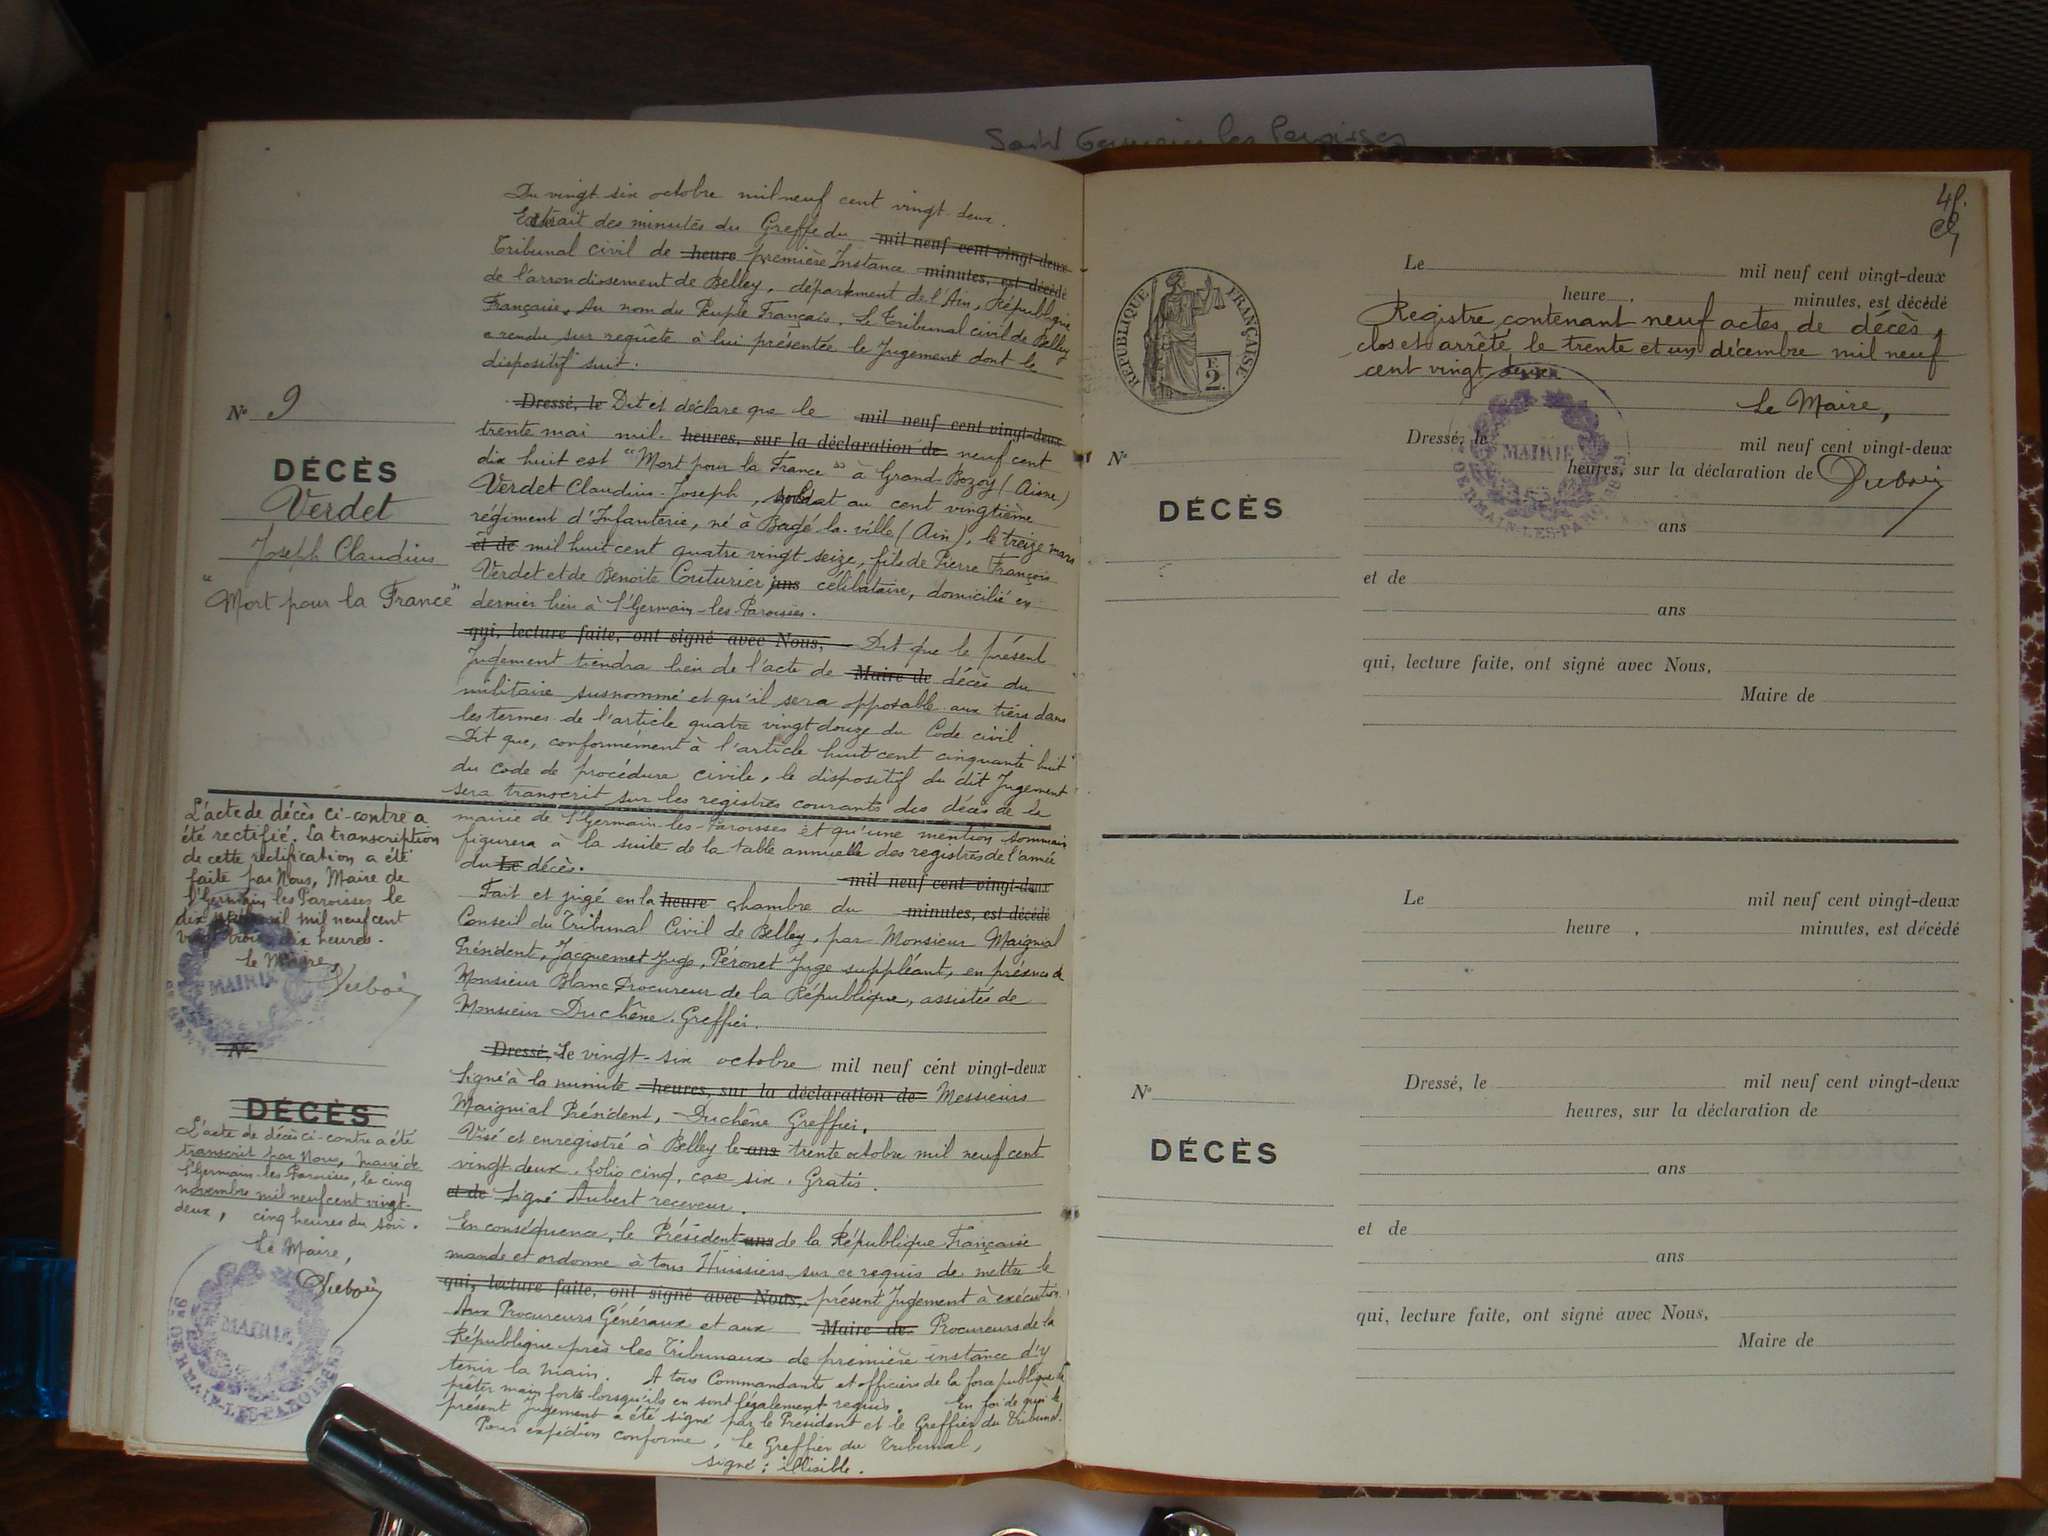 Saint Germain les Paroisses
Du vingt six octobre mil neuf cent vingt deux.
Extrait des minutes du Greffe du mil neuf cent vingt-deux
Tribunal civil de heure première Instance minutes, est décédé
de l'arrondissement de Belley, département de l'Ain, République
Française. Au nom du Peuple Français. Le Tribunal civil de Belley
a rendu sur requête à lui présentée le Jugement dont le
dispositif suit.
N° 9
DÉCÈS
Verdet
Joseph Claudius
"Mort pour la France"
Dressé, le Dit et déclare que le mil neuf cent vingt-deux
trente mai mil heures, sur la déclaration de neuf cent
dix huit est "Mort pour la France" à Grand-Rozoy (Aisne)
Verdet Claudius-Joseph, soldat au cent vingtième
régiment d'Infanterie, né à Bagé-la-ville (Ain), le treize mars
et de mil huit cent quatre vingt seize, fils de Pierre François
Verdet et de Benoite Couturier ans célibataire, domicilié en
dernier lieu à St Germain-les-Paroisses.
qui, lecture faite, ont signé avec Nous, Dit que le présent
Jugement tiendra lieu de l'acte de Maire de décès du
militaire susnommé et qu'il sera opposable aux tiers dans
les termes de l'article quatre vingt douze du Code civil
Dit que, conformément à l'article huit cent cinquante huit
du code de procédure civile, le dispositif du dit Jugement
sera transcrit sur les registres courants des décès de la
mairie de St Germain-les-Paroisses et qu'une mention sommaire
figurera à la suite de la table annuelle des registres de l'année
du Le décès. mil neuf cent vingt-deux
Fait et jugé en la heure chambre du minutes, est décédé
Conseil du Tribunal Civil de Belley, par Monsieur Maignial
Président, Jacquemet Juge, Péronet Juge suppléant, en présence de
Monsieur Blanc Procureur de la République, assistés de
Monsieur Duchêne Greffier.
Dressé, Le vingt-six octobre mil neuf cent vingt-deux
Signé à la minute heures, sur la déclaration de Messieurs
Maignial Président, Duchêne Greffier.
Visé et enregistré à Belley le ans trente octobre mil neuf cent
vingt deux. folio cinq, case six. Gratis.
et de Signé Aubert receveur.
En conséquence, le Président ans de la République Française
mande et ordonne à tous Huissiers sur ce requis de mettre le
qui, lecture faite, ont signé avec Nous, présent Jugement à exécution.
Aux Procureurs Généraux et aux Maire de Procureurs de la
République près les Tribunaux de première instance d'y
tenir la main. A tous Commandants et officiers de la force publique de
prêter main forte lorsqu'ils en sont légalement requis. En foi de quoi le
présent Jugement a été signé par le Président et le Greffier du Tribunal.
Pour expédition conforme, Le Greffier du Tribunal,
signé : illisible.
L'acte de décès ci-contre a
été rectifié. La transcription
de cette rectification a été
faite par Nous, Maire de
St Germain les Paroisses le
dix avril mil neuf cent
vingt trois, dix heures.
Le Maire,
Dubois
MAIRIE
N°
DÉCÈS
L'acte de décès ci-contre a été
transcrit par Nous, Maire de
St Germain-les-Paroisses, le cinq
novembre mil neuf cent vingt-
deux, cinq heures du soir.
Le Maire,
Dubois
MAIRIE
St GERMAIN-LES-PAROISSES
RÉPUBLIQUE FRANÇAISE
F.
2.
Le mil neuf cent vingt-deux
heure , minutes, est décédé
Registre contenant neuf actes de décès,
clos et arrêté le trente et un décembre mil neuf
cent vingt deux
Le Maire,
Dressé, le mil neuf cent vingt-deux
heures, sur la déclaration de Dubois
MAIRIE
St GERMAIN-LES-PAROISSES
N°
DÉCÈS
ans
et de
ans
qui, lecture faite, ont signé avec Nous,
Maire de
Le mil neuf cent vingt-deux
heure , minutes, est décédé
N°
DÉCÈS
Dressé, le mil neuf cent vingt-deux
heures, sur la déclaration de
ans
et de
ans
qui, lecture faite, ont signé avec Nous,
Maire de